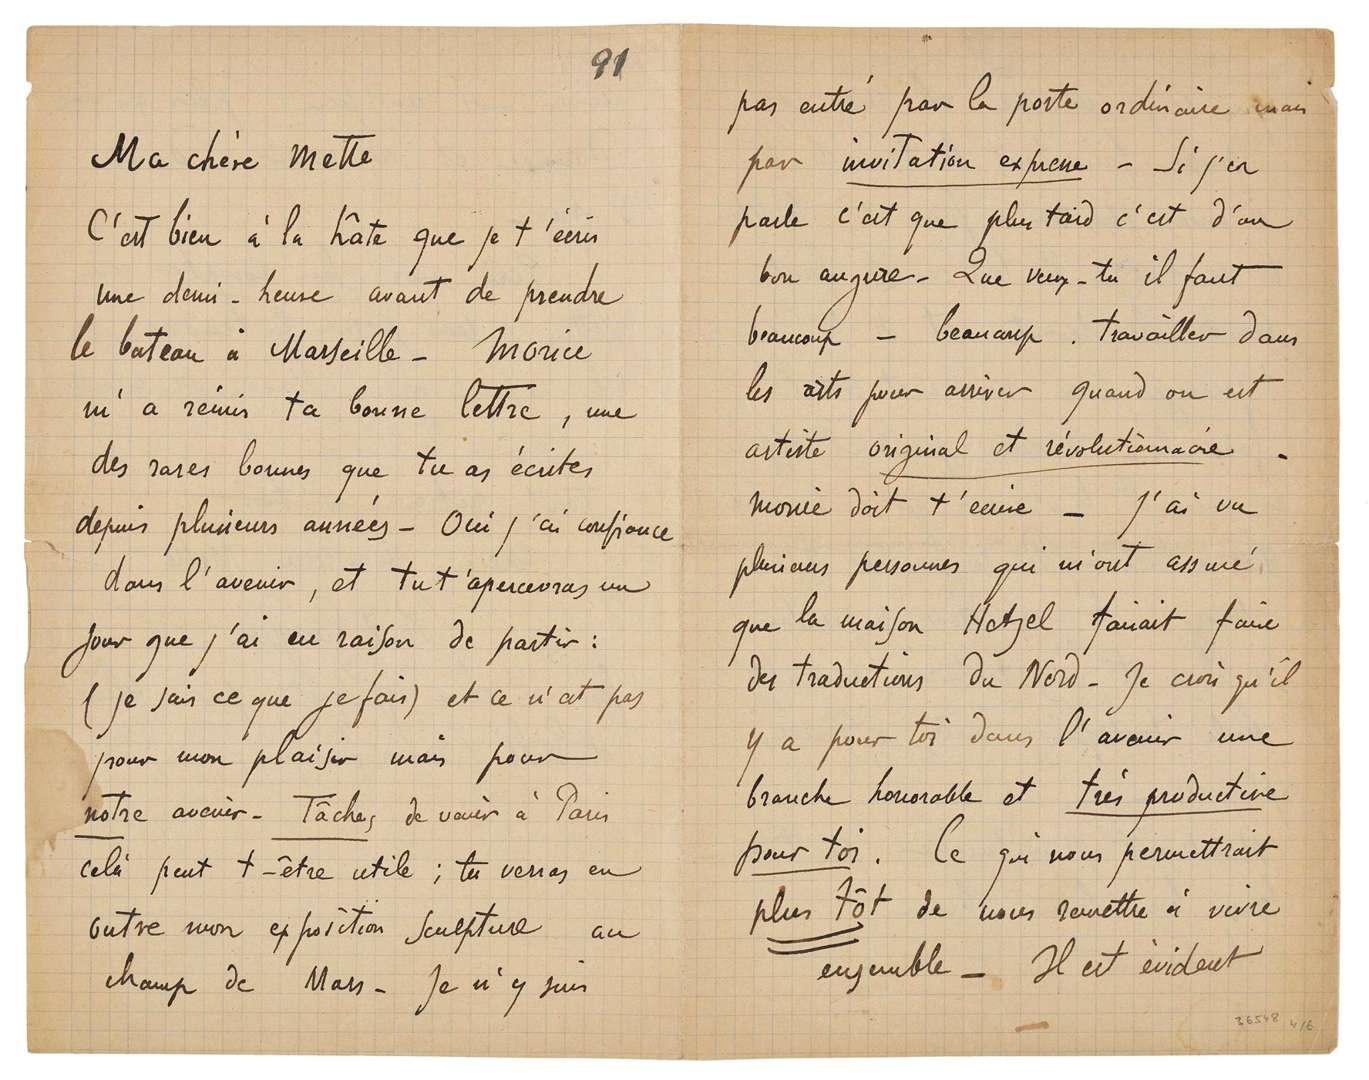 91
Ma chère Mette
C'est bien à la hâte que je t'écris
une demi-heure avant de prendre
le bateau à Marseille - Morice
m'a remis ta bonne lettre, une
des rares bonnes que tu as écrites
depuis plusieurs années - Oui j'ai confiance
dans l'avenir, et tu t'apercevras un
jour que j'ai eu raison de partir :
(je sais ce que je fais) et ce n'est pas
pour mon plaisir mais pour
notre avenir - Tâches de venir à Paris
celà peut t-être utile ; tu verras en
outre mon exposition sculpture au
champ de Mars - Je n'y suis
pas entré par la porte ordinaire mais
par invitation expresse - Si j'en
parle c'est que plus tard c'est d'un
bon augure - Que veux-tu il faut
beaucoup - beaucoup . travailler dans
les arts pour arriver quand on est
artiste original et révolutionnaire .
Morice doit t'écrire - J'ai vu
plusieurs personnes qui m'ont assuré
que la maison Hetzel faisait faire
des traductions du Nord - Je crois qu'il
y a pour toi dans l'avenir une
branche honorable et très productive
pour toi. Ce qui nous permettrait
plus tôt de nous remettre à vivre
ensemble - Il est évident
36548 4/6